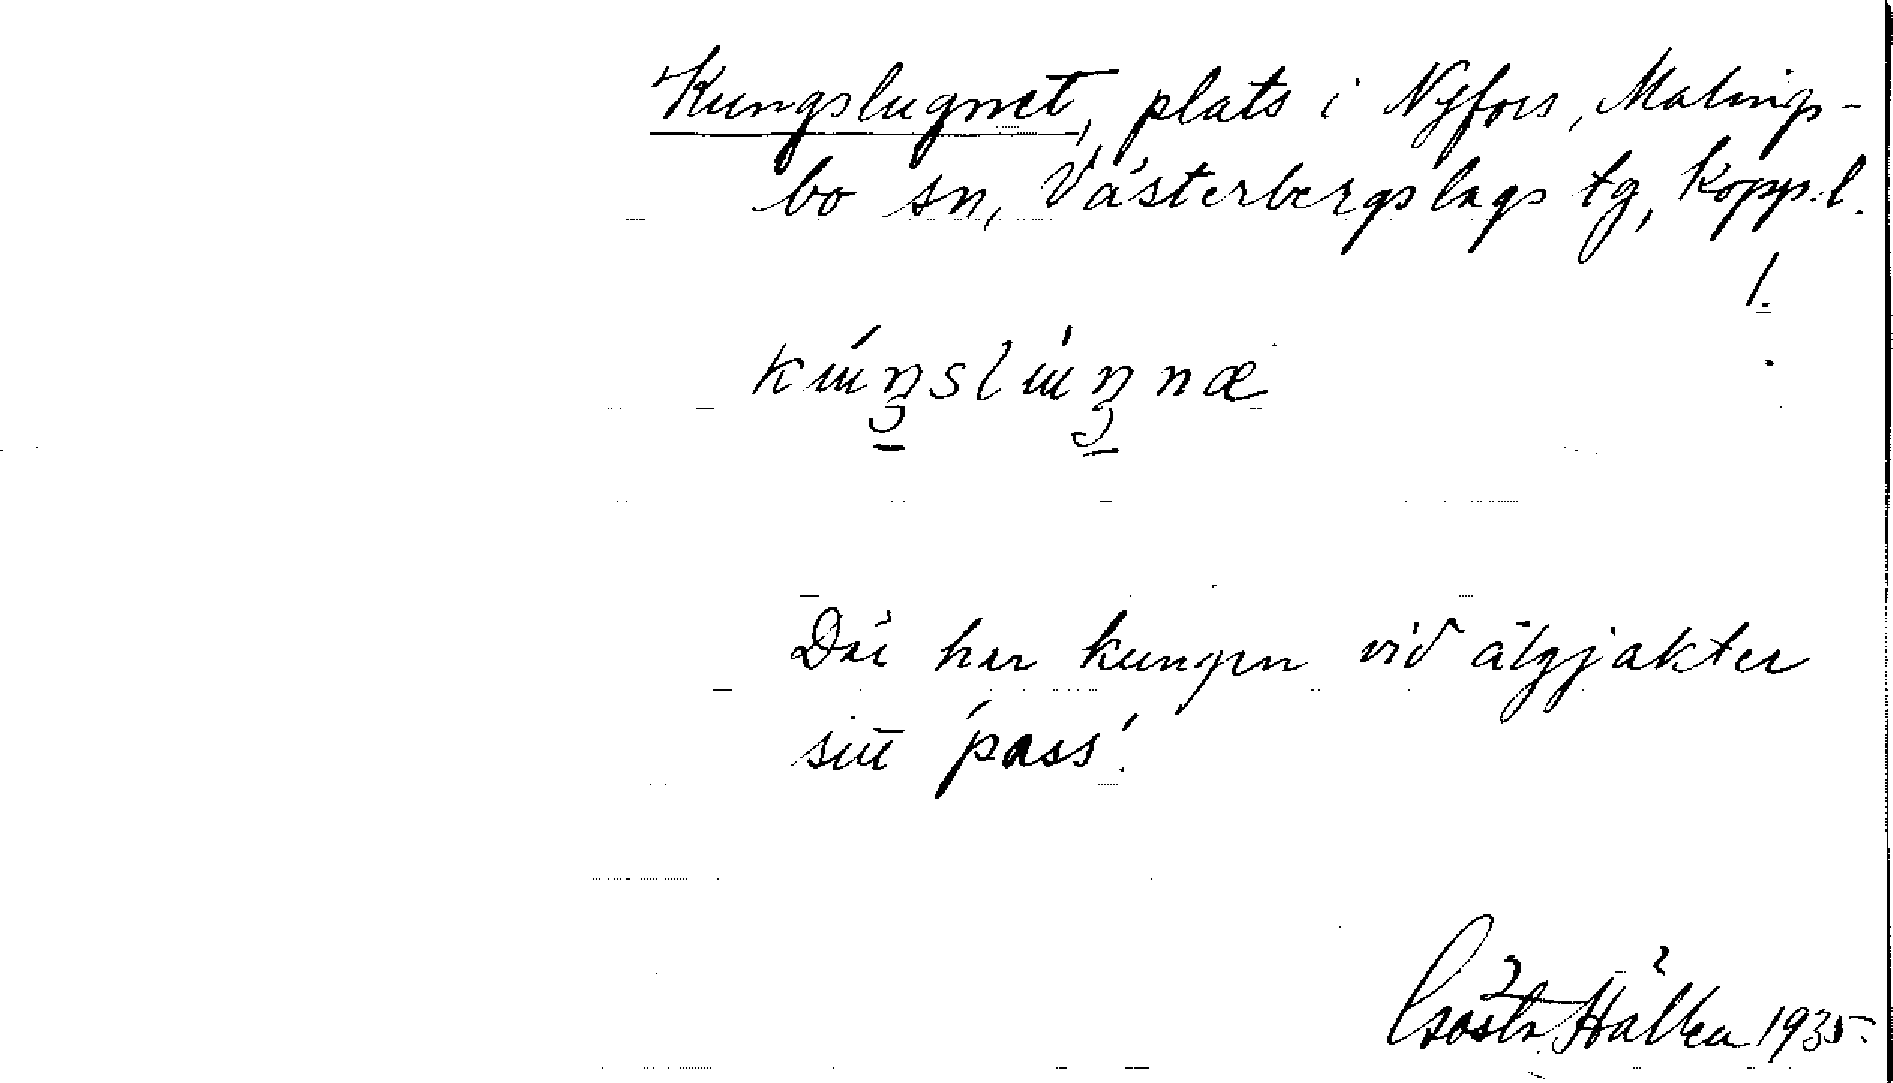 Kungslugnet, plats i Nyfors, Malings-
bo sn, Västerbergslags tg, Kopp. l.
1.
Där har kungen vid älgjakter
sitt 'pass'.
Gösta 1935.